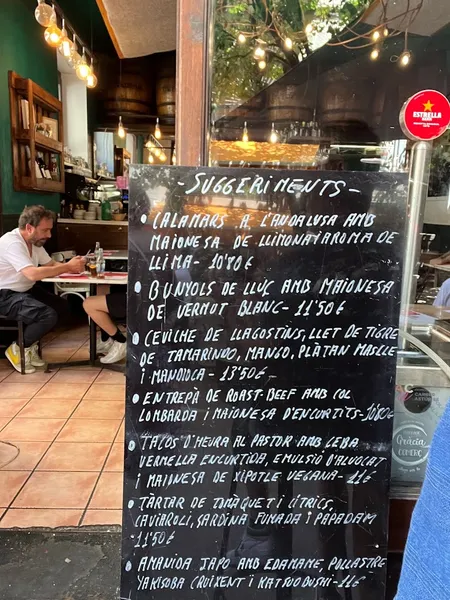 ESTRELLA
-SUGGERIMENTS-
• CALAMARS A L'ANDALUSA AMB
MAIONESA DE LLIMONA I AROMA DE
LLIMA- 10'70€
• BUNYOLS DE LLUÇ AMB MAIONESA
DE VERMUT BLANC- 11'50€
• CEVICHE DE LLAGOSTINS, LLET DE TIGRE
DE TAMARINDO, MANGO, PLÀTAN MASLLE
I MANDIOCA- 13'50€
• ENTREPÀ DE ROAST-BEEF AMB COL
LOMBARDA I MAIONESA D'ENCURTITS-
• TACOS D'HEURA AL PASTOR AMB CEBA
VERMELLA ENCURTIDA, EMULSIÓ D'ALVOCAT
I MAIONESA DE XIPOTLE VEGANA- 11€
• TÀRTAR DE TOMÀQUET I CÍTRICS,
CAVIAROLI, SARDINA FUMADA I PAPADAM
-11'50€
• AMANIDA JAPO AMB EDAMAME, POLLASTRE
YAKISOBA CRUIXENT I KATSUOBUSHI-11€
Gràcia
COMERÇ